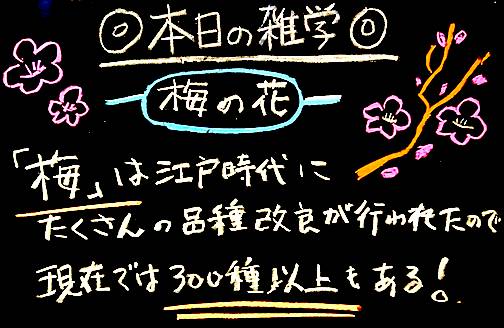 ◎本日の雑学◎
梅の花
「梅」は江戸時代に
たくさんの品種改良が行われたので
現在では300種以上もある!